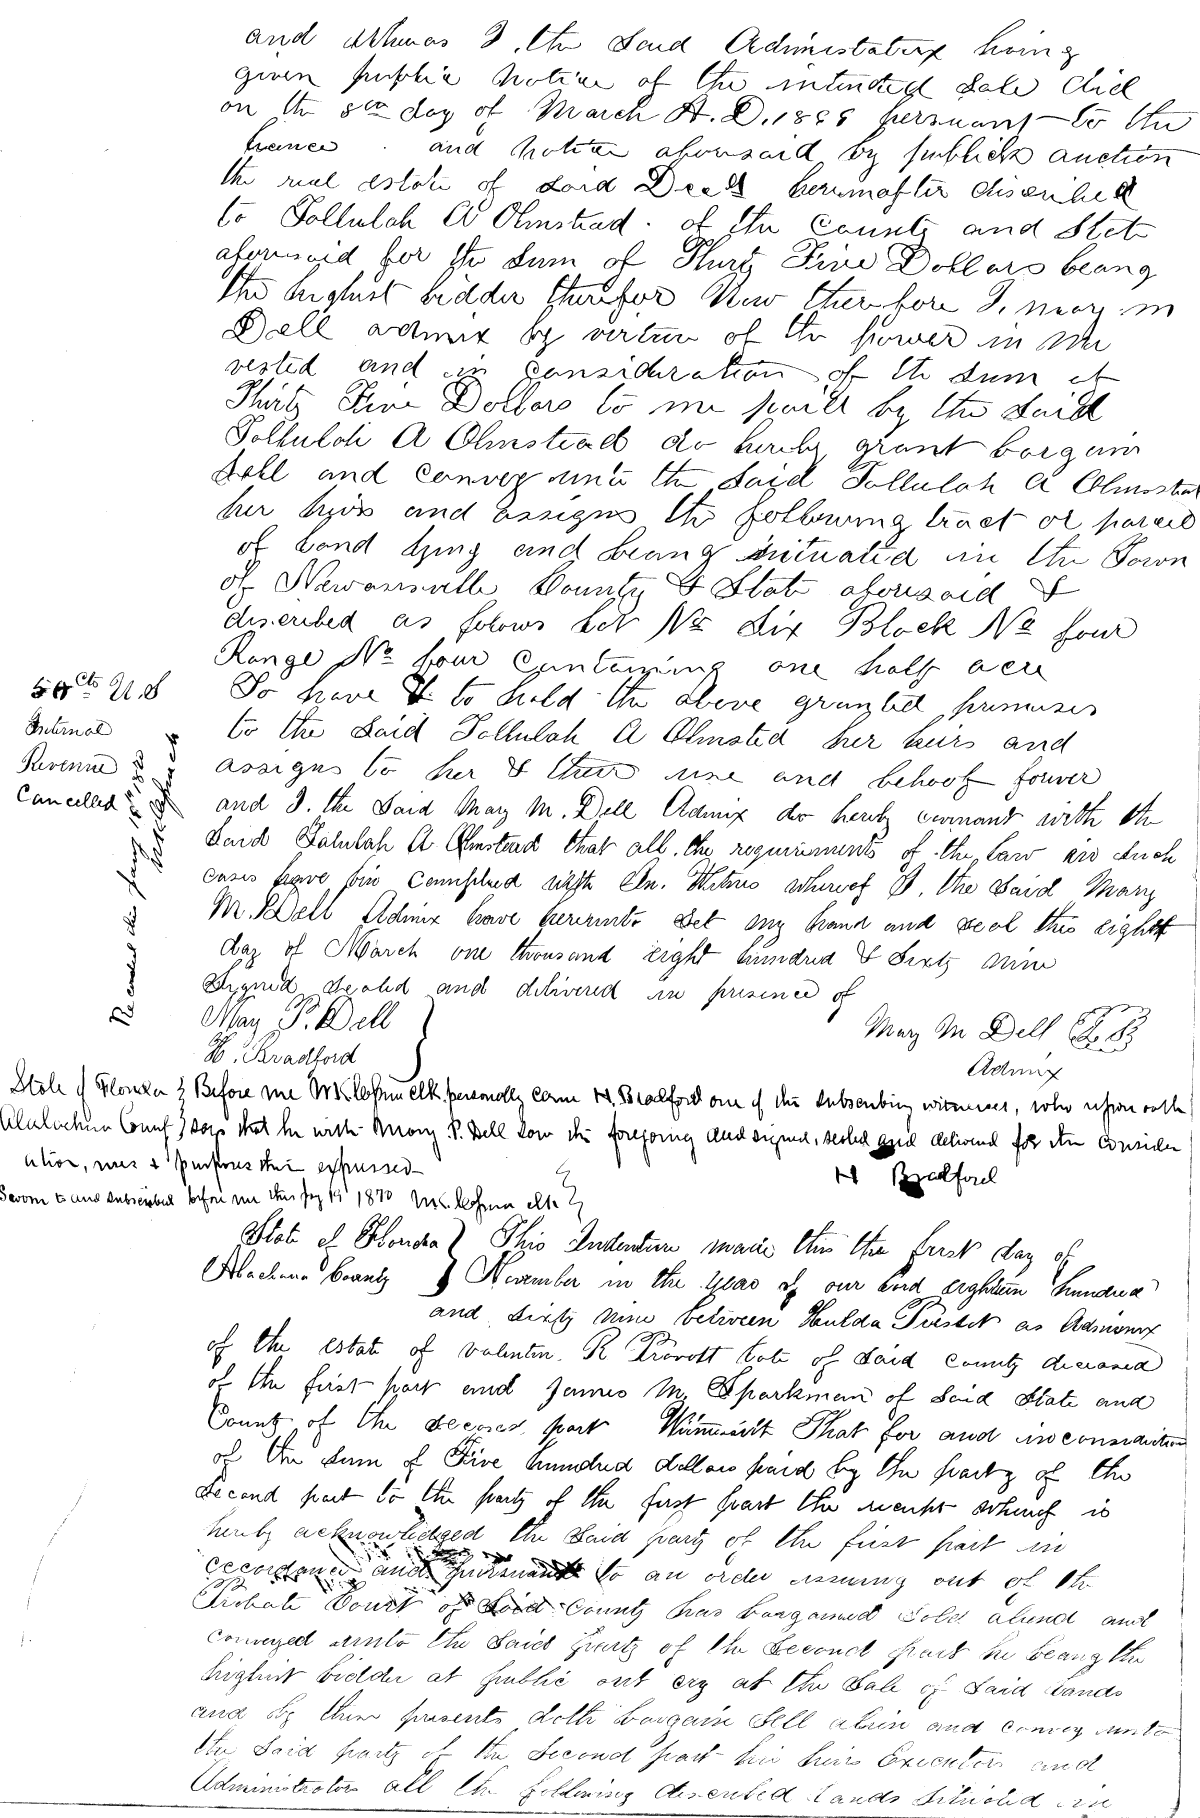 and Whereas I, the Said Administatrix having
given public notice of the intended Sale did
on the 8th day of March A.D. 1869 persuant to the
and notice aforesaid by publick auction
the real estate of Said Decd hereinafter discribed
to Tollulah A Olmstead. of the County and State
aforesaid for the Sum of Thirty Five Dollars beang
the highest bidder therefor Now therefore I, Mary M
Dell admix by vertue of the power in me
vested and in consideration of the Sum of
Thirty Five Dollars to me paid by the Said
Tollulah A Olmstead do hereby grant bargain
Sell and convey unto the Said Tollulah A Olmstead
her hirs and assigns the following tract or parcel
of Land lying and beang situated in the Town
of Newansville County & State aforesaid &
discribed as folows Lot No Six Block No four
Range No four containing one half acre
To have & to hold the above granted premises
to the Said Tollulah A Olmsted her heirs and
assigns to her & their use and behoof forever
and I. the Said Mary M. Dell Admix do hereby covenant with the
Said Talulah A Olmstead that all the requirements of the Law in Such
cases have bin complied with In Witness whereof I, the Said Mary
M. Dell Admix have hereunto Set my hand and seal this eight
day of March one thousand eight hundred & Sixty nine
Signed Sealed and delivered in presence of
Mary P. Dell
H. Bradford
Mary M Dell
Admix
50 cts U.S
Internal
Revenue
Cancelled
Recorded this
State of Florida } Before me personally came H. Bradford one of the subscribing witnesses, who upon oath
Alachua County } says that he with Mary P. Dell saw the foregoing deed signed, sealed and delivered for the consider
ation, uses & purposes therein expressed
H Bradford
Sworn to and subscribed before me this 1870
State of Florida } This Indenture made this the first day of
Alachua County } November in the year of our Lord eighteen hundred
and sixty nine between Hulda as Admix
of the estate of Valentin R Late of Said county deceased
of the first part and James M. Sparkman of Said State and
County of the second part That for and in consideration
of the Sum of Five hundred dollars paid by the party of the
Second part to the party of the first part the receipt whereof is
hereby acknowledged the Said party of the first part in
accordance and pursuant to an order issuing out of the
Probate Court of Said County has bargained Sold and
conveyed unto the Said party of the Second part he beang the
highest bidder at public out cry at the Sale of Said Lands
and by these presents doth bargain Sell alien and convey unto
the Said party of the Second part his heirs Executors and
Administrators all the following described Lands Situated in